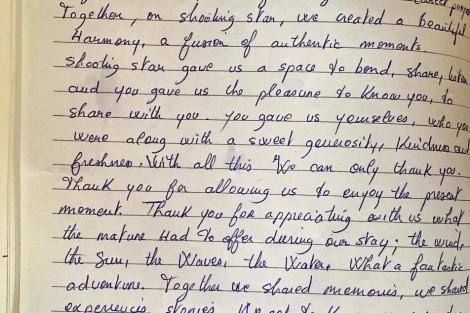 Together, on shooting star, we created a beautiful
Harmony, a fusion of authentic moments.
shooting star gave us a space to bond, share, listen
and you gave us the pleasure to know you, to
share with you. you gave us yourselves, who you
were along with a sweet generosity, kindness and
freshness. With all this We can only thank you.
Thank you for allowing us to enjoy the present
moment. Thank you for appreciating with us what
the mature Had to offer during our stay; the wind,
the Sun, the Waves, the Water, What a fantastic
adventure. Together we shared memories, we shared
experiences stories